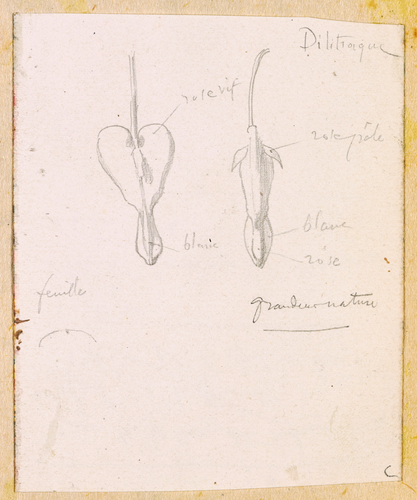 rose vif
rose pâle
blanc
blanc
rose
feuille
grandeur nature
C